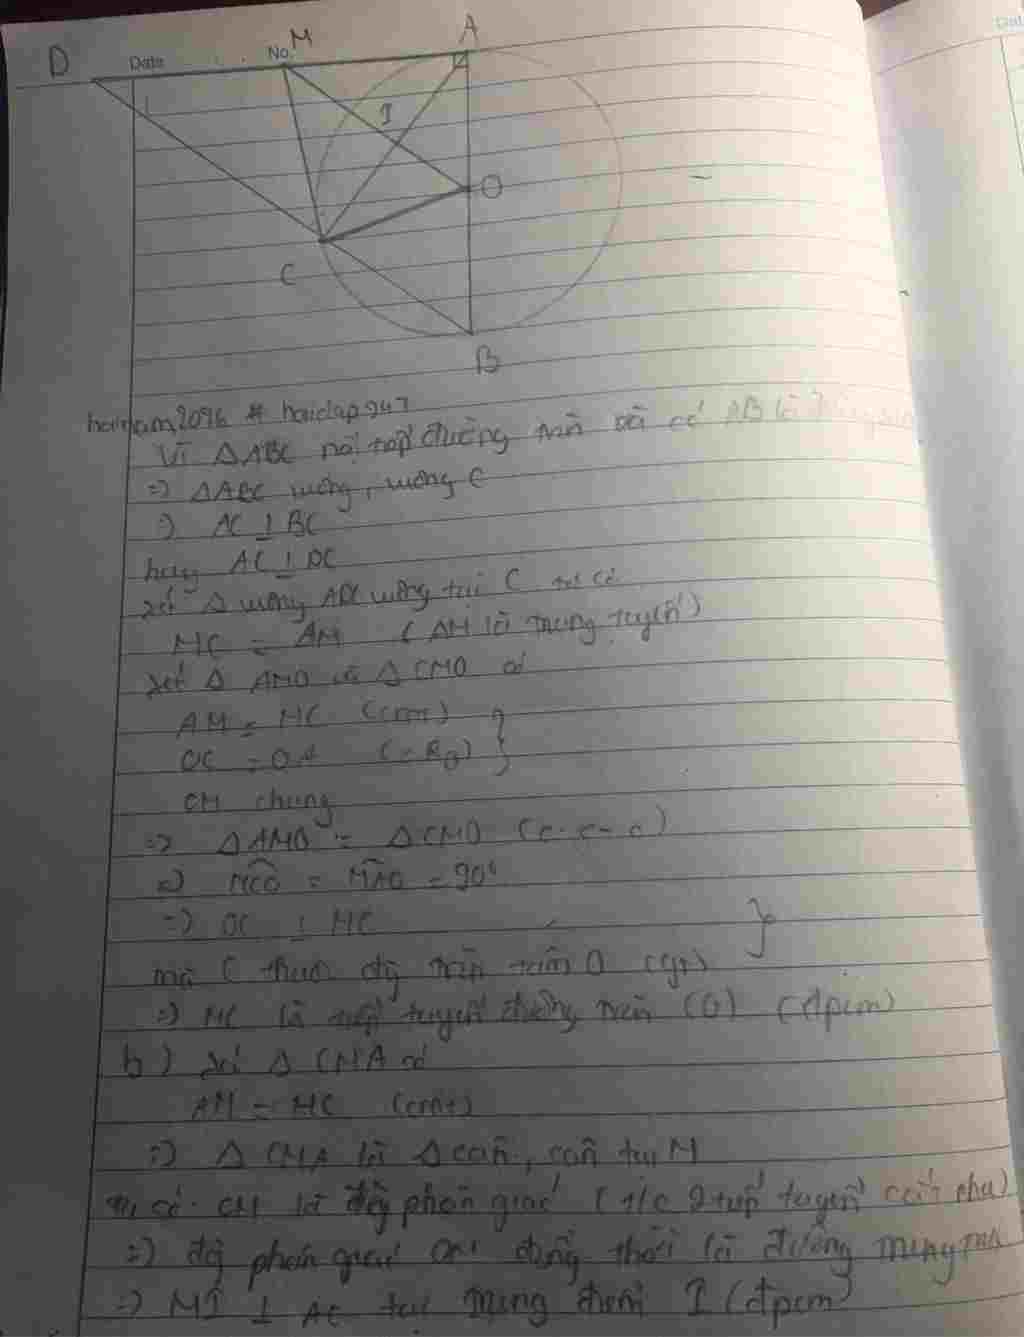 D Date No. M A
I
O
C
B
Vì ΔABC nội tiếp đường tròn và có AB là
=> ΔABC vuông, vuông C
=> AC ⊥ BC
hay AC ⊥ DC
xét Δ vuông ADC vuông tại C có
MC = AM ( AM là trung tuyến)
xét Δ AMO và Δ CMO có
AM = MC (cmt) }
OC = OA (= R)
OM chung
=> Δ AMO = Δ CMO (c-c-c)
=> MCO = MAO = 90°
=> OC ⊥ MC }
mà C thuộc đg tròn tâm O (gt)
=> MC là tiếp tuyến đường tròn (O) (đpcm)
b) xét Δ CMA có
AM = MC (cmt)
=> Δ CMA là Δ cân, cân tại M
có OM là đg phân giác (t/c 2 tiếp tuyến cắt nhau)
=> đg phân giác OM đồng thời là đường trung trực
=> MI ⊥ AC tại trung điểm I (đpcm)